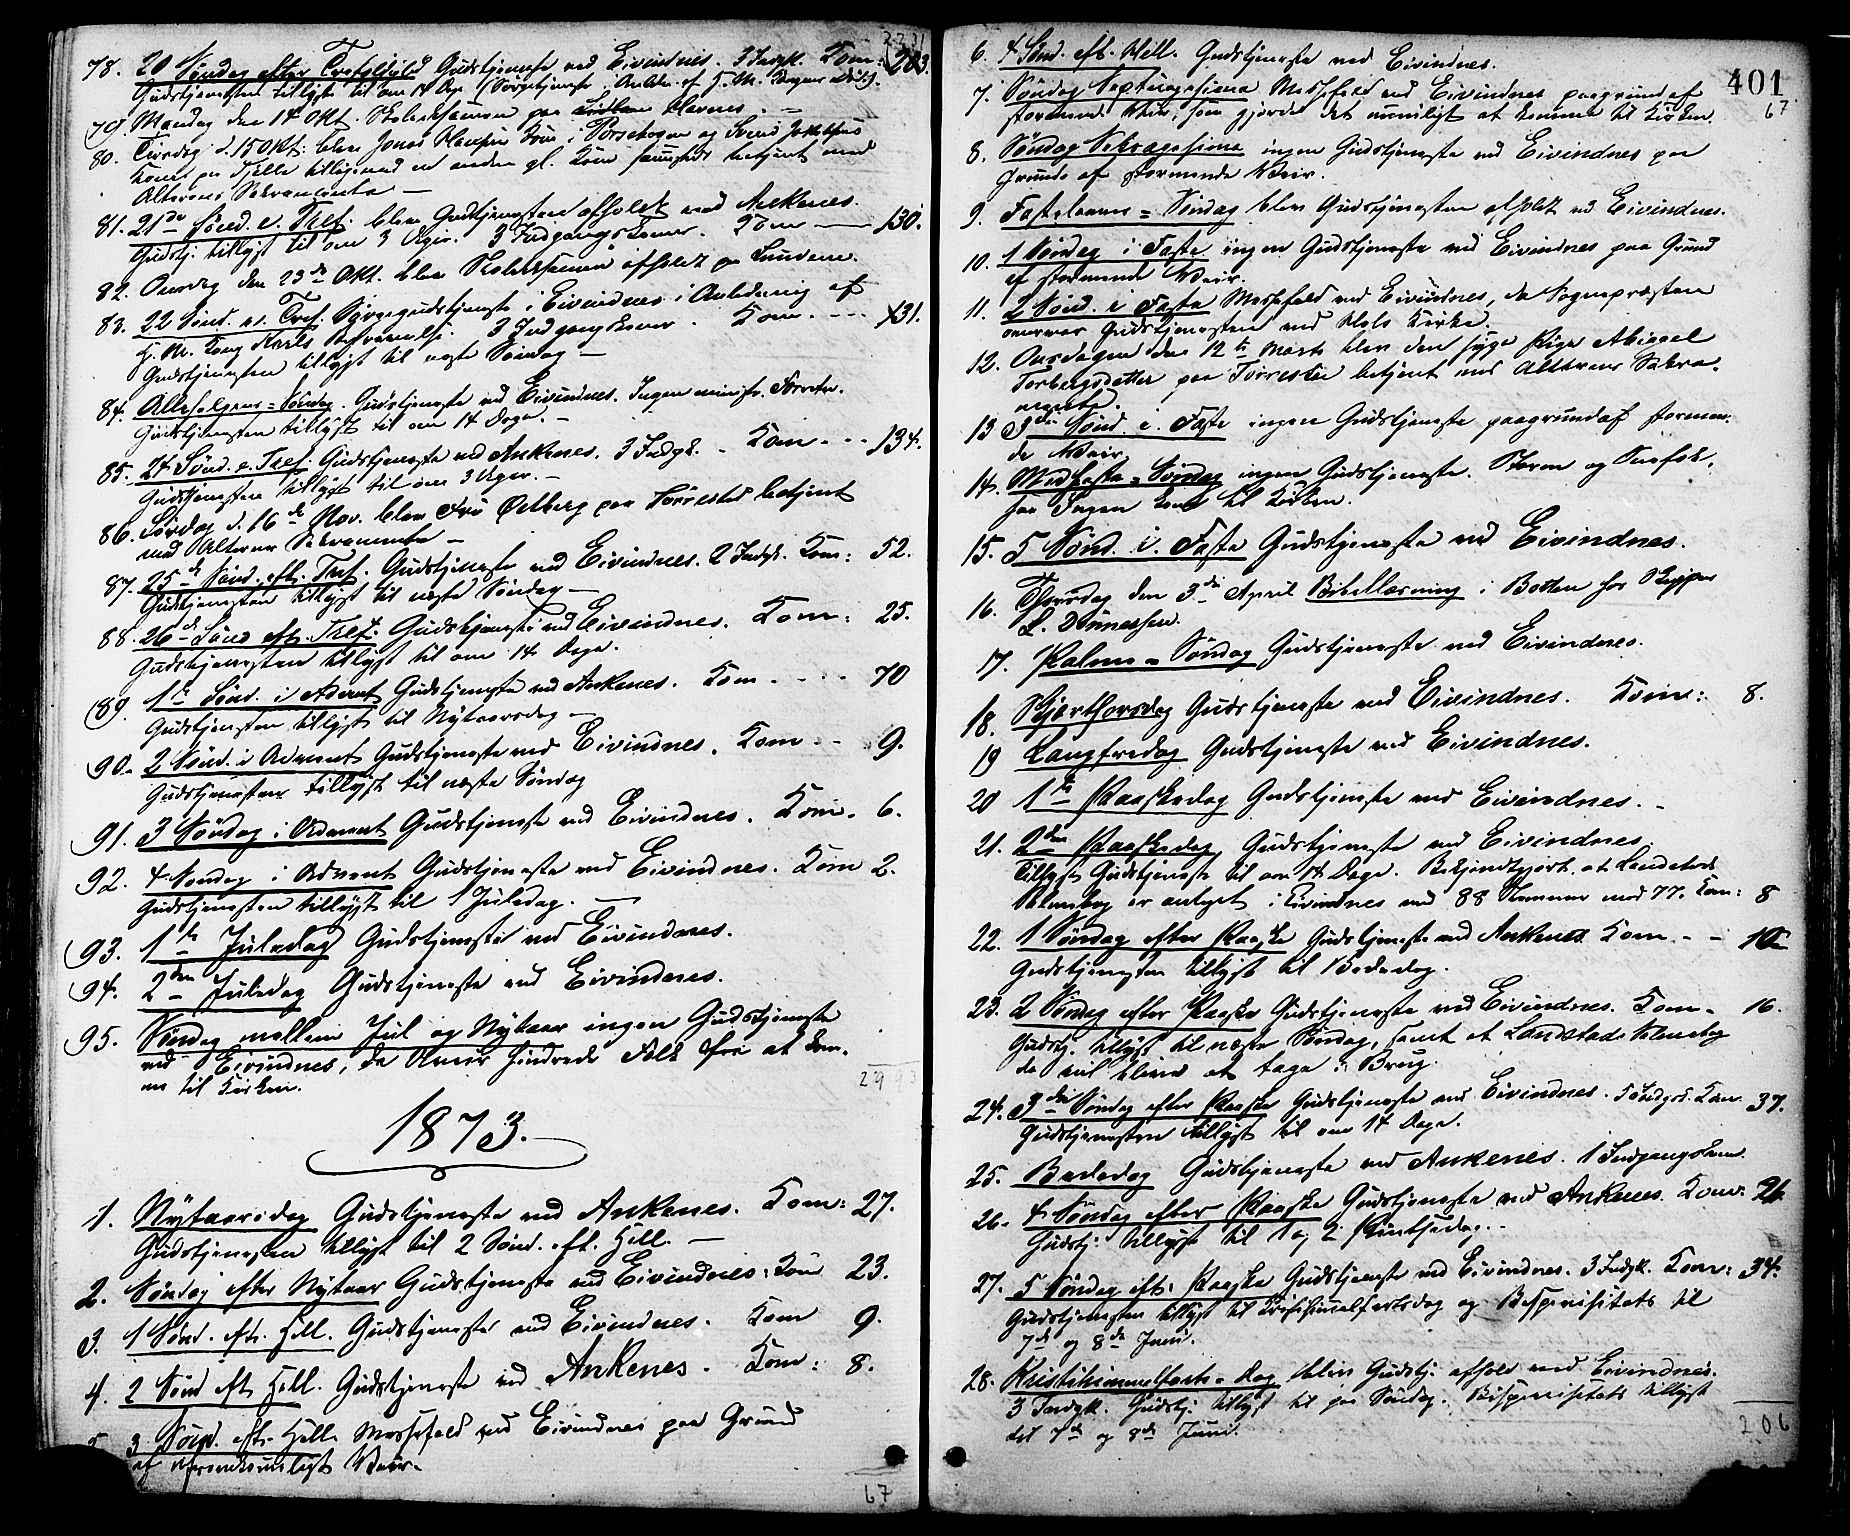 2231
78. 20 Søndag efter Trefoldighed Gudstjeneste ved Eivindnes. 3 Indgk. Kom: 203.
Gudstjenesten tillyst til om 14 Dge (Sørgetjeneste i Anledn. af H. M. Kongens Død).
79. Mandag den 14 Okt. Skoleeksamen paa Havnes. —
80. Tirsdag d. 15 Okt: blev Jonas Hansens Kone i og
Kone paa tilligemed en anden gl. Kone sammesteds betjent med
Alterens Sakramente —
81. 21de Sønd. e. Tref. blev Gudstjenesten afholdt ved Ankenes.
Gudstj. tillyst til om 3 Uger. 3 Indgangskoner. Kom — 130.
82. Onsdag den 23de Okt. blev Skoleeksamen afholdt paa Lundene.
83. 22 Sønd. e. Tref. Sørgegudstjeneste i Eivindnes i Anledning af
H. M. Kong Karls 3 Indgangskoner. Kom. --- 131.
Gudstjenesten tillyst til næste Søndag —
84. Allehelgens=Søndag. Gudstjeneste ved Eivindnes. Ingen minist. Forretn.
Gudstjenesten tillyst til om 14 Dage. —
85. 24 Sønd. e. Tref. Gudstjeneste ved Ankenes. 3 Indgk. - Kom - - - 134.
Gudstjenesten tillyst til om 3 Uger. —
86. Lørdag d. 16de Nov. blev Fru Østberg paa betjent
med Alterens Sakramente —
87. 25de Sønd. eft. Tref. Gudstjeneste ved Eivindnes. 2 Indgk. Kom: 52.
Gudstjenesten tillyst til næste Søndag —
88. 26de Sønd eft. Tref: Gudstjeneste ved Eivindnes. Kom: 25.
Gudstjenesten tillyst til om 14 Dage.
89. 1ste Sønd. i Advent Gudstjeneste ved Ankenes. Kom - - - - 70
Gudstjenesten tillyst til Nytaarsdag —
90. 2 Sønd. i Advent Gudstjeneste ved Eivindnes. Kom - - 9.
Gudstjenesten tillyst til næste Søndag
91. 3 Søndag i Advent Gudstjeneste ved Eivindnes. Kom. 6.
92. 4 Søndag i Advent Gudstjeneste ved Eivindnes. Kom 2.
Gudstjenesten tillyst til 1 Juledag. —
93. 1ste Juledag Gudstjeneste ved Eivindnes.
94. 2den Juledag Gudstjeneste ved Eivindnes.
95. Søndag mellem Jul og Nytaar ingen Gudstjeneste
ved Eivindnes, da Uveir hindrede Folk fra at kom-
me til Kirken.
1873.
1. Nytaarsdag Gudstjeneste ved Ankenes. Kom: 27.
Gudstjenesten tillyst til 2 Sønd. eft. Hell. —
2. Søndag efter Nytaar Gudstjeneste ved Eivindnes: Kom 23.
3. 1 Sønd. eft. Hell. Gudstjeneste ved Eivindnes. Kom 9.
4. 2 Sønd eft Hell. Gudstjeneste ved Ankenes. Kom: 8.
5. 3 Sønd. eft. Hell. Messefald ved Eivindnes paa Grund
af Veir.
67
401
67
6. 4 Sønd. eft. Hell. Gudstjeneste ved Eivindnes.
7. Søndag Septuagesima Messefald ved Eivindnes paagrund af
stormende Veir, som gjorde det umuligt at komme til Kirken.
8. Søndag Sexagesima ingen Gudstjeneste ved Eivindnes paa
Grund af stormende Veir.
9. Fastelavns=Søndag blev Gudstjenesten afholdt ved Eivindnes.
10. 1 Søndag i Faste ingen Gudstjeneste ved Eivindnes paa Grund
af stormende Veir.
11. 2 Sønd. i Faste Messefald ved Eivindnes, da Sognepræsten
overvar Gudstjenesten ved Hols Kirke.
12. Onsdagen den 12te Marts blev den syge Pige Abigael
Torbergsdatter paa betjent med Alterens Sakra-
mente.
13 3die Sønd. i. Faste ingen Gudstjeneste paagrundaf stormen-
de Veir.
14. Midfaste=Søndag ingen Gudstjeneste. Storm og Snefok.
saa Ingen kom til Kirken.
15. 5 Sønd. i. Faste Gudstjeneste ved Eivindnes.
16. Thorsdag den 3die April Bibellæsning i Botten hos Skipper
L. Dønnessen.
17. Palme=Søndag Gudstjeneste ved Eivindnes.
18. Skjærthorsdag Gudstjeneste ved Eivindnes. Kom: 8.
19 Langfredag Gudstjeneste ved Eivindnes.
20 1ste Paaskedag Gudstjeneste ved Eivindnes. -
21. 2den Paaskedag Gudstjeneste ved Eivindnes.
Tillyst Gudstjeneste til om 14 Dage. Bekjendtgjort, at Landstads
Salmebog er antaget i Eivindnes med 88 Stemmer mod 77. Kom: 8
22. 1 Søndag efter Paaske Gudstjeneste ved Ankenes Kom. - - 10
Gudstjenesten tillyst til Bededag.
23. 2 Søndag efter Paaske Gudstjeneste ved Eivindnes. Kom - 16.
Gudstj. tillyst til næste Søndag, samt at Landstads Salmebog
da vil blive at tage i Brug.
24. 3die Søndag efter Paaske Gudstjeneste ved Eivindnes. Kom 37.
Gudstjenesten tillyst til om 14 Dage.
25. Bededag Gudstjeneste ved Ankenes. 1 Indgangskone.
26. 4 Søndag efter Paaske Gudstjeneste ved Ankenes. Kom: 26.
Gudstj. tillyst til 1 og 2 Pintsedag. -
27. 5 Søndag eft. Paaske Gudstjeneste ved Eivindnes. 3 Indgk. Kom: 34.
Gudstjenesten tillyst til Kristihimmelfartsdag og Bispevisitats til
7de og 8de Juni.
28. Kristihimmelfarts=Dag blev Gudstj. afholdt ved Eivindnes.
3 Indgk. Gudstj: tillyst til paa Søndag. Bispevisitats tillyst
til 7de og 8de Juni.
206